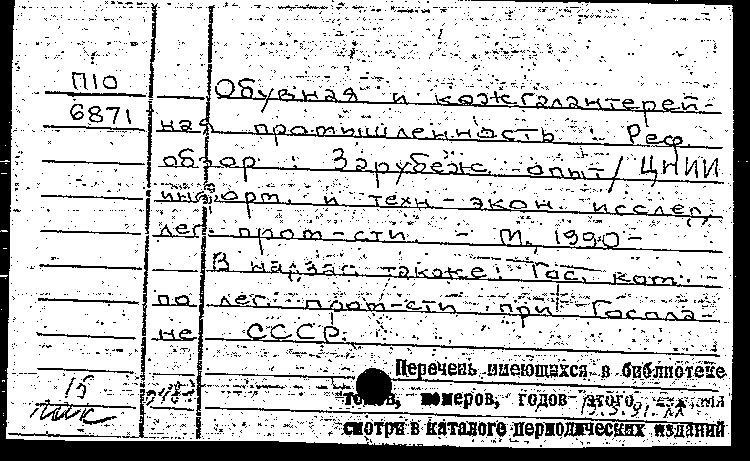 П10
6871
Обувная и кожгалантерей-
ная промышленность : Реф.
обзор : Зарубеж. опыт / ЦНИИ
информ. и техн-экон. исслед.
лег. пром-сти. - М., 1990-
В надзаг. также: Гос. ком.
по лег. пром-сти при Госпла-
не СССР.
Перечень имеющихся в библиотеке
томов, номеров, годов этого издания
смотри в каталоге периодических изданий
15
13.3.91.